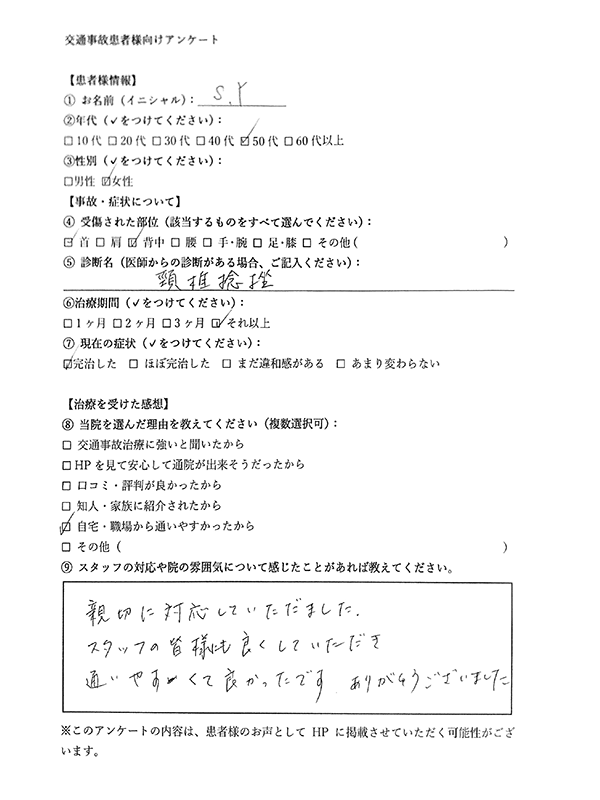 交通事故患者様向けアンケート
【患者様情報】
① お名前（イニシャル）： S.Y
②年代（✓をつけてください）：
□10代 □20代 □30代 □40代 ☑50代 □60代以上
③性別（✓をつけてください）：
□男性 ☑女性
【事故・症状について】
④ 受傷された部位（該当するものをすべて選んでください）：
☑ 首 □ 肩 ☑ 背中 □ 腰 □ 手・腕 □ 足・膝 □ その他（ ）
⑤ 診断名（医師からの診断がある場合、ご記入ください）：
頸椎捻挫
⑥治療期間（✓をつけてください）：
□1ヶ月 □2ヶ月 □3ヶ月 ☑それ以上
⑦ 現在の症状（✓をつけてください）：
☑完治した □ ほぼ完治した □ まだ違和感がある □ あまり変わらない
【治療を受けた感想】
⑧ 当院を選んだ理由を教えてください（複数選択可）：
□ 交通事故治療に強いと聞いたから
□HPを見て安心して通院が出来そうだったから
□ 口コミ・評判が良かったから
□ 知人・家族に紹介されたから
☑ 自宅・職場から通いやすかったから
□ その他（ ）
⑨ スタッフの対応や院の雰囲気について感じたことがあれば教えてください。
親切に対応していただました.
スタッフの皆様にも良くしていただき
通いやすくて良かったです ありがとうございました
※このアンケートの内容は、患者様のお声として HP に掲載させていただく可能性がござ
います。